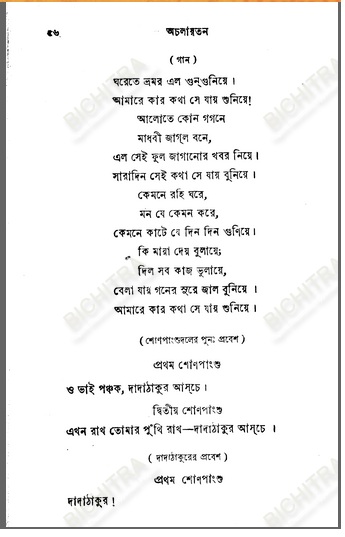 ৫৬ অচলায়তন
( গান )
ঘরেতে ভ্রমর এল গুন্‌গুনিয়ে ।
আমারে কার কথা সে যায় শুনিয়ে!
আলোতে কোন গগনে
মাধবী জাগ্‌ল বনে,
এল সেই ফুল জাগানোর খবর নিয়ে ।
সারাদিন সেই কথা সে যায় শুনিয়ে ।
কেমনে রহি ঘরে,
মন যে কেমন করে,
কেমনে কাটে যে দিন দিন গুণিয়ে ।
কি মায়া দেয় বুলায়ে;
দিল সব কাজ ভুলায়ে,
বেলা যায় গানের সুরে জাল বুনিয়ে ।
আমারে কার কথা সে যায় শুনিয়ে ।
( শোণপাংশুদলের পুনঃ প্রবেশ )
প্রথম শোণপাংশু
ও ভাই পঞ্চক, দাদাঠাকুর আস্‌চে ।
দ্বিতীয় শোণপাংশু
এখন রাখ তোমার পুঁথি রাখ—দাদাঠাকুর আস্‌চে ।
( দাদাঠাকুরের প্রবেশ )
প্রথম শোণপাংশু
দাদাঠাকুর !
BICHITRA
BICHITRA
BICHITRA
BICHITRA
BICHITRA
BICHITRA